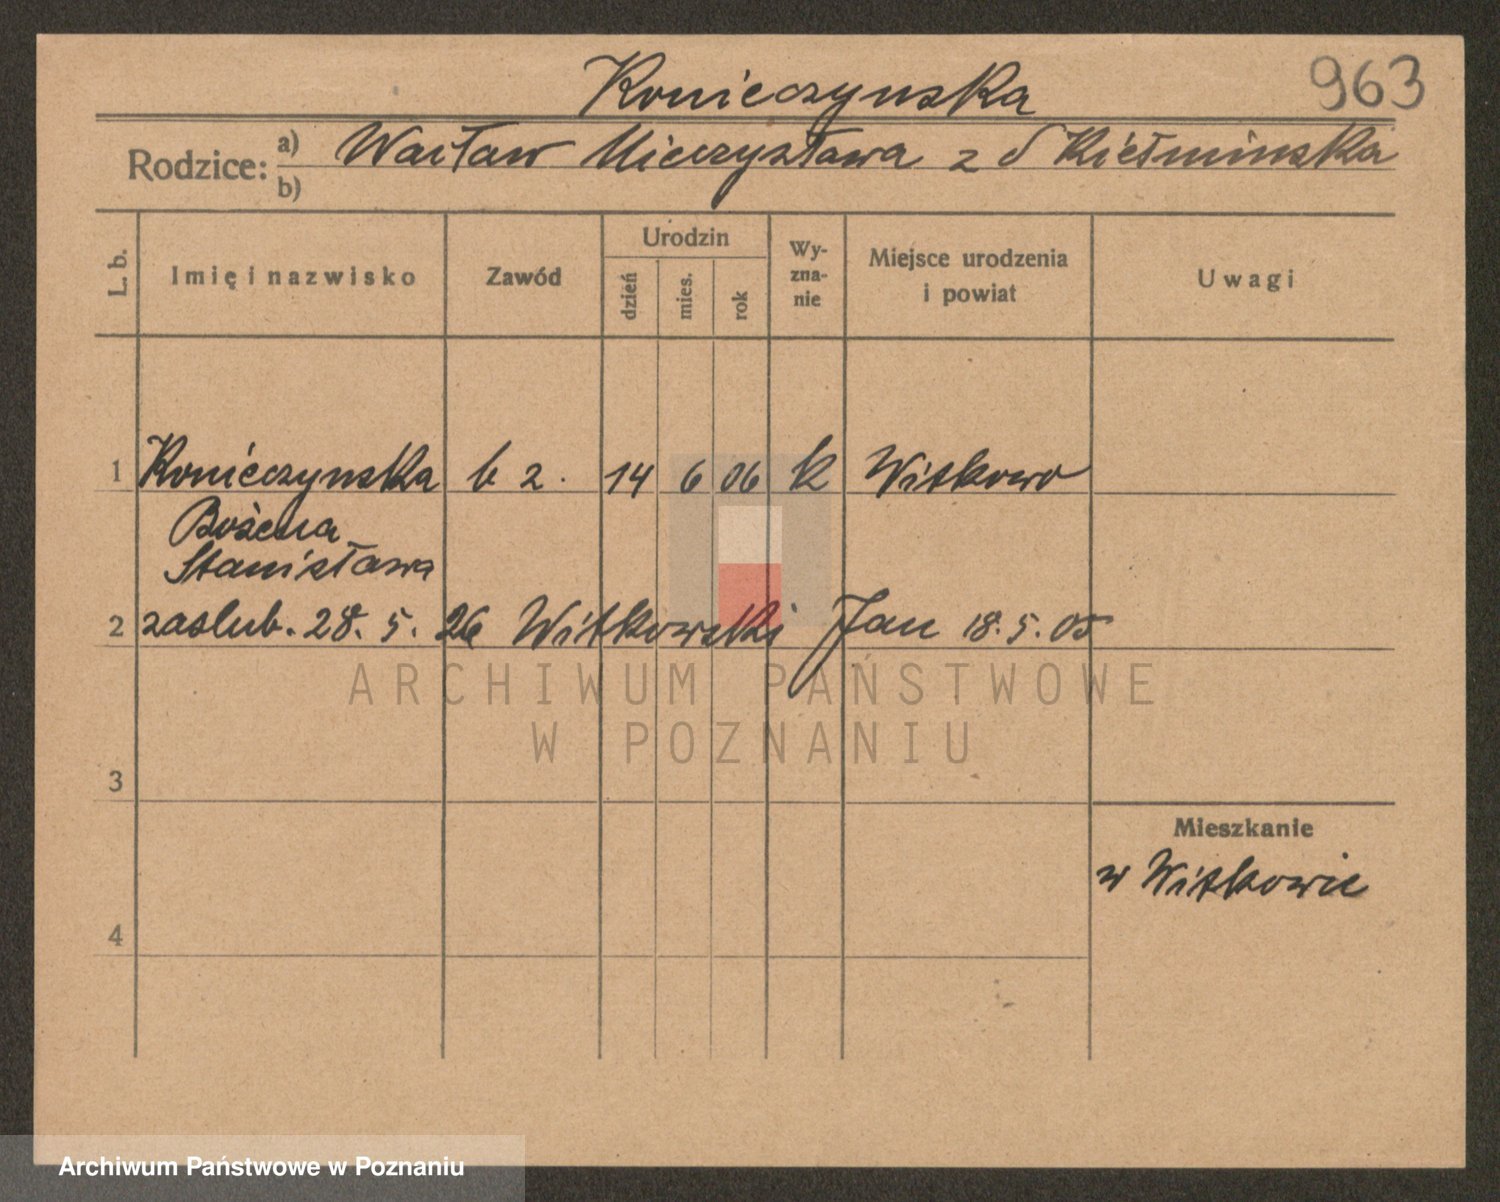 Konieczynska
963
Rodzice: a) Wacław Mieczysława z d Kiełminska
b)
L. b.
Imię i nazwisko
Zawód
Urodzin
dzień
mies.
rok
Wy-
zna-
nie
Miejsce urodzenia
i powiat
Uwagi
1 Konieczynska b z. 14 6 06 k Witkowo
Bożena
Stanisława
2 zaslub. 28. 5. 26 Witkowski Jan 18. 5. 05
ARCHIWUM PAŃSTWOWE
W POZNANIU
3
Mieszkanie
w Witkowie
4
Archiwum Państwowe w Poznaniu